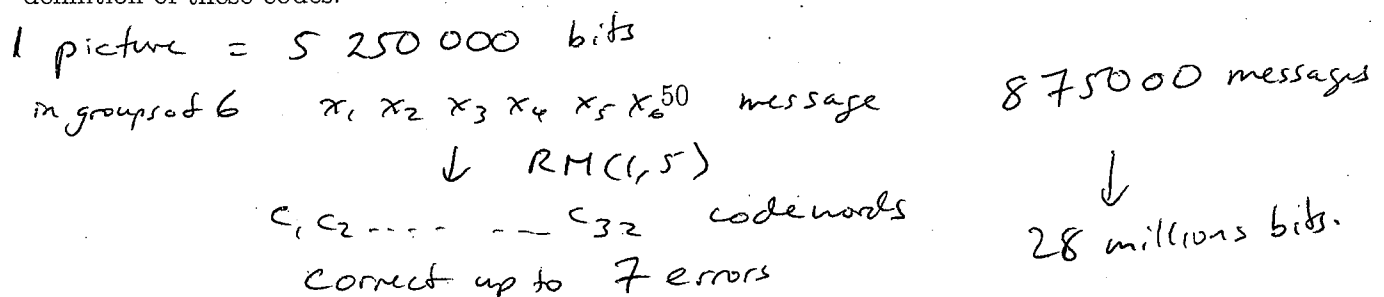 definition of these codes.
1 picture = 5 250 000 bits
in groups of 6 x₁ x₂ x₃ x₄ x₅ x₆ 50 message 875000 messages
↓ RM(1,5) ↓
c₁ c₂ .... .. __ c₃₂ codewords 28 millions bits.
correct up to 7 errors